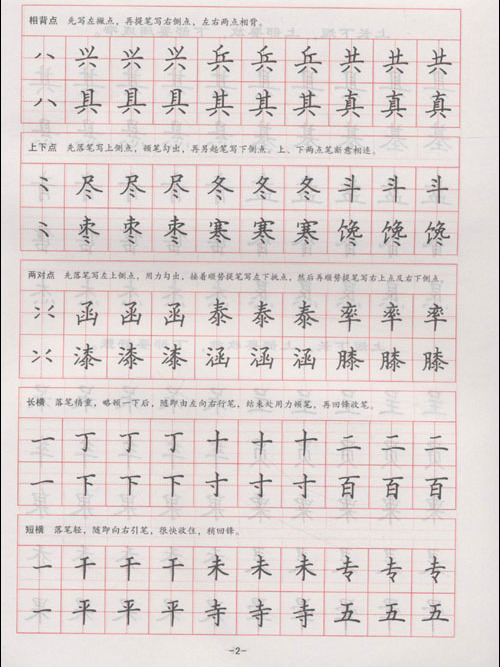 相背点 先写左撇点，再提笔写右侧点，左右两点相背。
八 兴 兴 兴 兵 兵 兵 共 共 共
八 具 具 具 其 其 其 真 真 真
上下点 先落笔写上侧点，顿笔勾出，再另起笔写下侧点。上、下两点笔断意相连。
尽 尽 尽 冬 冬 冬 斗 斗 斗
枣 枣 枣 寒 寒 寒 馋 馋 馋
两对点 先落笔写左上侧点，用力勾出，接着顺势提笔写左下挑点，然后再顺势提笔写右上点及右下侧点。
函 函 函 泰 泰 泰 率 率 率
漆 漆 漆 涵 涵 涵 膝 膝 膝
长横 落笔稍重，略顿一下后，随即由左向右行笔，结末处用力顿笔，再回锋收笔。
一 丁 丁 丁 十 十 十 二 二 二
一 下 下 下 寸 寸 寸 百 百 百
短横 落笔轻，随即向右引笔，很快收住，稍回锋。
一 干 干 干 未 未 未 专 专 专
一 平 平 平 寺 寺 寺 五 五 五
-2-